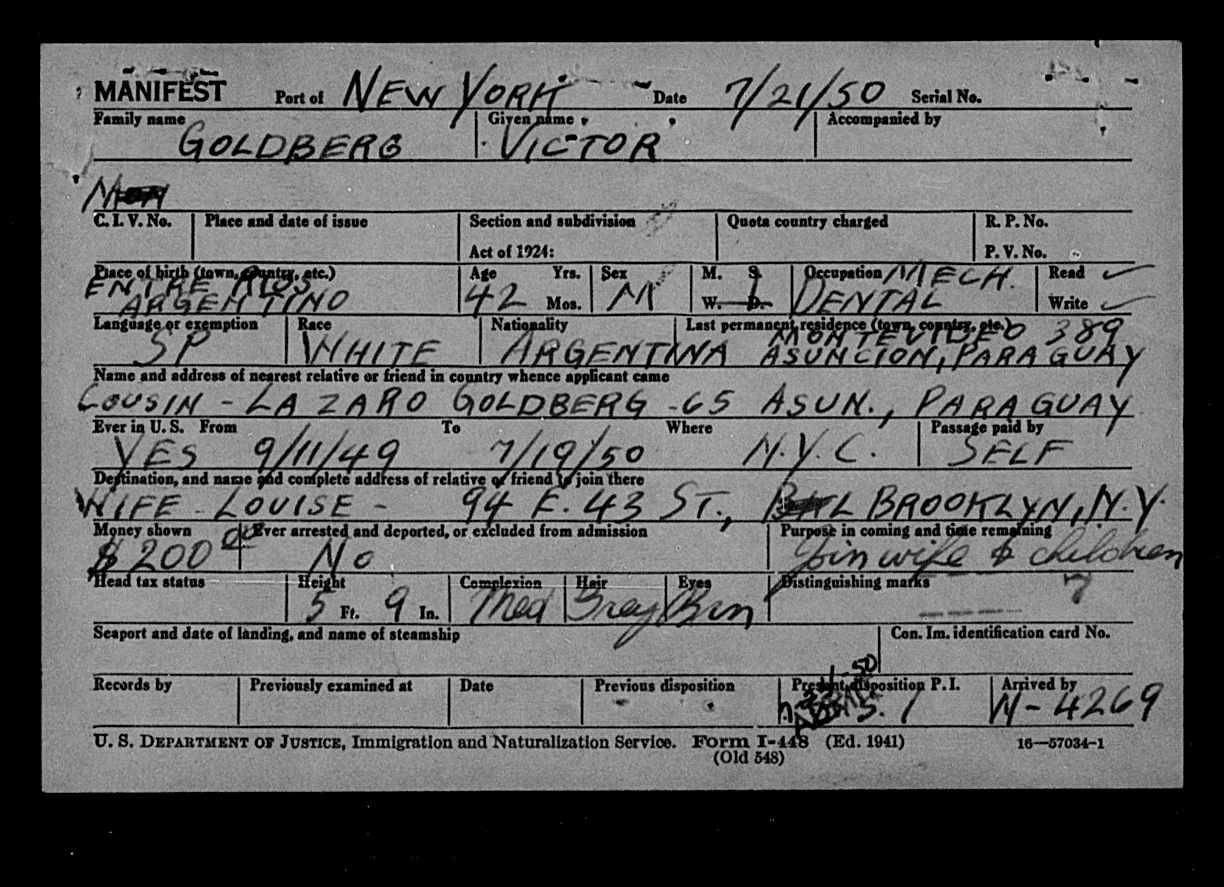 MANIFEST Port of NEW YORK Date 7/21/50 Serial No.
Family name Given name Accompanied by
GOLDBERG VICTOR
C. I. V. No. Place and date of issue Section and subdivision Quota country charged R. P. No.
Act of 1924: P. V. No.
Place of birth (town, country, etc.) Age Yrs. Sex M. S. Occupation MECH. Read ✓
ENTRE RIOS
ARGENTINO 42 Mos. M W. D. DENTAL Write ✓
Language or exemption Race Nationality Last permanent residence (town, country, etc.)
MONTEVIDEO 389
SP WHITE ARGENTINA ASUNCION, PARAGUAY
Name and address of nearest relative or friend in country whence applicant came
COUSIN - LAZARO GOLDBERG - 65 ASUN., PARAGUAY
Ever in U. S. From To Where Passage paid by
YES 9/11/49 7/19/50 N.Y.C. SELF
Destination, and name and complete address of relative or friend to join there
WIFE - LOUISE - 94 E. 43 ST., BROOKLYN, N.Y.
Money shown Ever arrested and deported, or excluded from admission Purpose in coming and time remaining
$200 00 NO Join wife & children
Head tax status Height Complexion Hair Eyes Distinguishing marks
5 Ft. 9 In. Med Grey Brn
Seaport and date of landing, and name of steamship Con. Im. identification card No.
Records by Previously examined at Date Previous disposition Present disposition P. I. Arrived by
N-4269
U. S. DEPARTMENT OF JUSTICE, Immigration and Naturalization Service. Form I-448 (Ed. 1941) 16—57034-1
(Old 548)